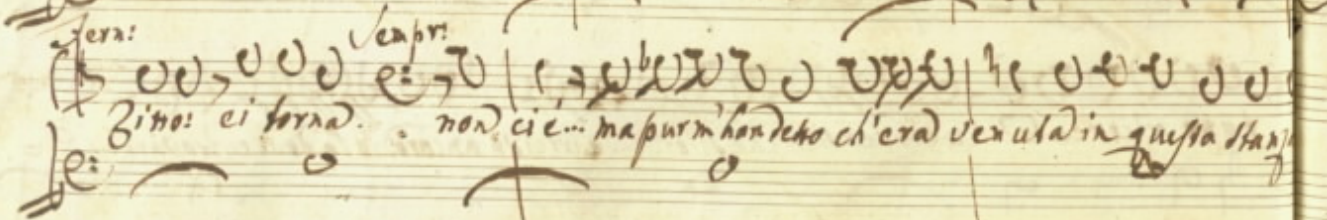 Fern: Sempr:
Zitto! ei torna. non ci è... ma pur m'han detto ch'era venuta in questa stanz